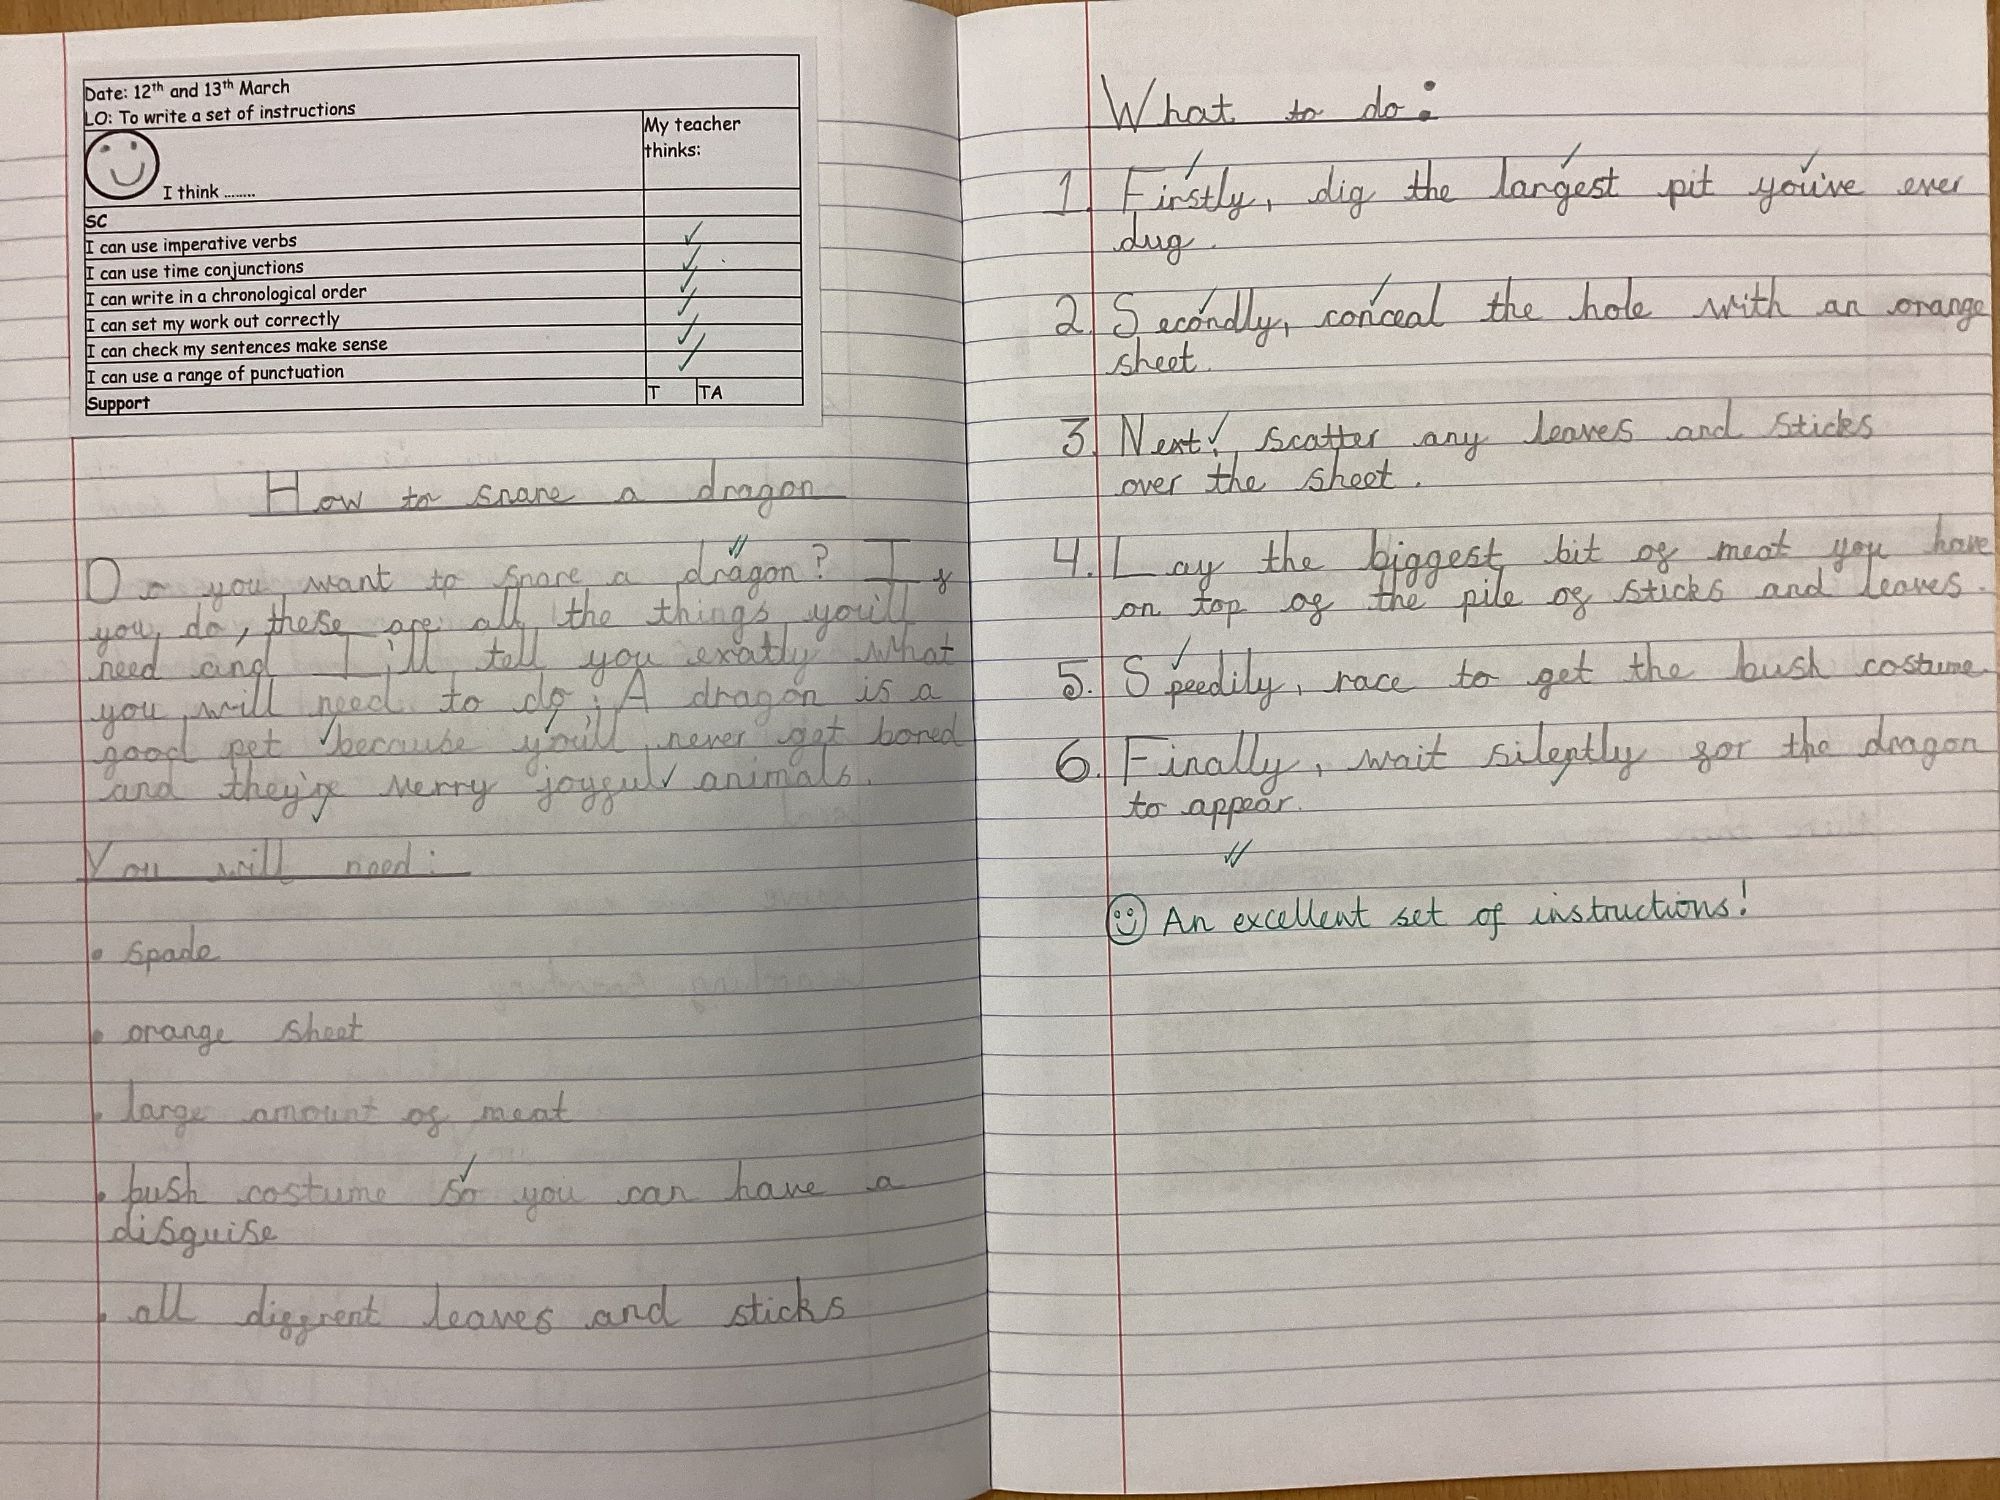 Date: 12th and 13th March
LO: To write a set of instructions
I think ........
My teacher
thinks:
SC
I can use imperative verbs
I can use time conjunctions
I can write in a chronological order
I can set my work out correctly
I can check my sentences make sense
I can use a range of punctuation
Support
T TA
How to snare a dragon
Do you want to snare a dragon? If
you do, these are all the things you'll
need and I'll tell you exatly what
you will need to do. A dragon is a
good pet because you'll never get bored
and they're merry joyful animals.
You will need:
• spade
• orange sheet
• large amount of meat
• bush costume so you can have a
disguise
• all diffrent leaves and sticks
What to do:
1. Firstly, dig the largest pit you've ever
dug.
2. Secondly, conceal the hole with an orange
sheet.
3. Next, scatter any leaves and sticks
over the sheet.
4. Lay the biggest bit of meat you have
on top of the pile of sticks and leaves.
5. Speedily, race to get the bush costume.
6. Finally, wait silently for the dragon
to appear.
An excellent set of instructions!